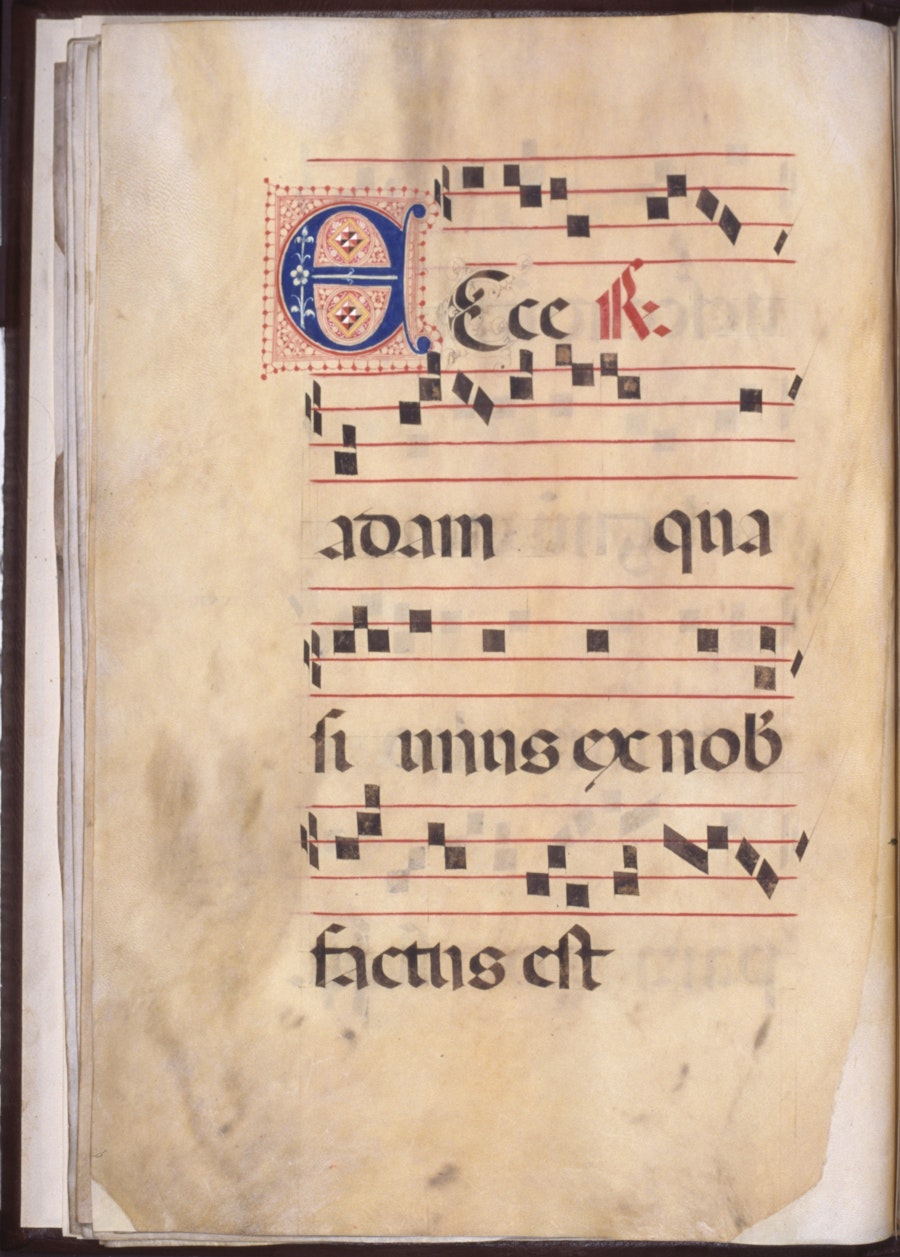 Ecce ℟.
adam qua
si unus ex nob̄
factus est